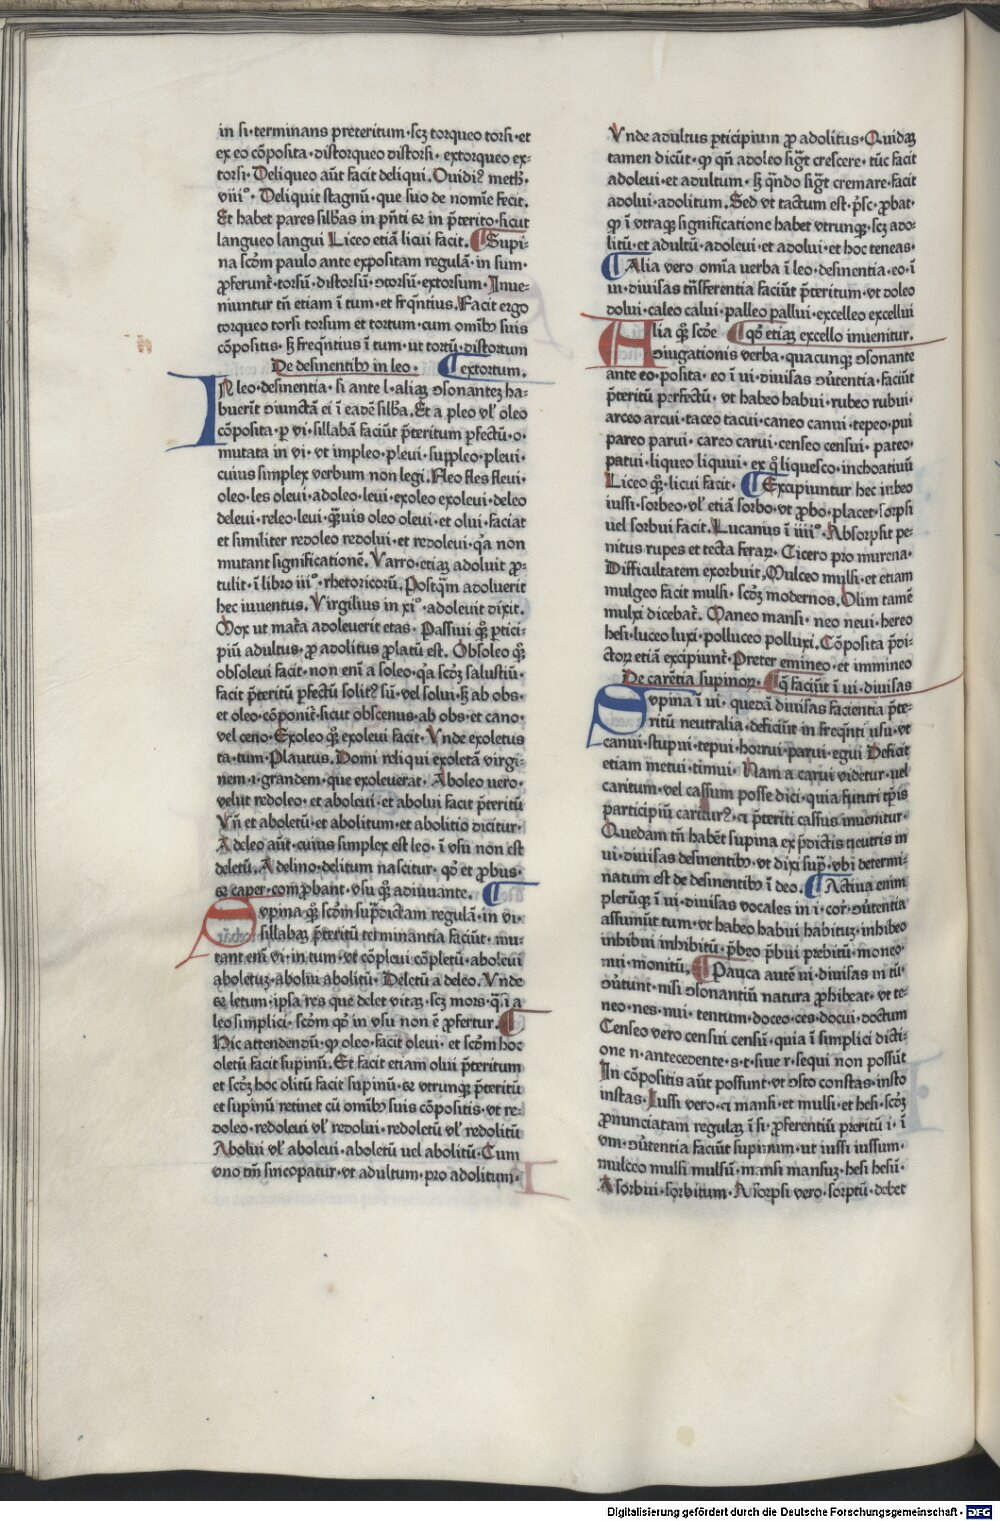 in si·terminans preteritum·scꝫ torqueo torsi·et
ex eo cōposita·distorqueo distorsi·extorqueo ex=
torsi·Deliqueo aūt facit deliqui.Ouidiꝰ meth·
viii°·Deliquit stagnū·que suo de nomīe fecit.
Et habet pares silbas in pn̄ti ⁊ in p̄terito·sicut
langueo langui Liceo etiā licui facit.¶Supi-
na scd̄m paulo ante expositam regulā·in sum·
ꝓferunt᷑·torsū·distorsū·ↄtorsū·extorsum·Inue-
niuntur tn̄ etiam ī tum·et freq̄ntius.Facit ergo
torqueo torsi torsum et tortum·cum omībꝰ suis
cōpositis·ẜ freq̄ntius ī tum·ut tortū·distortum
De desinentibꝰ in leo· ¶extortum.
IN leo·desinentia·si ante l·aliqꝫ ↄsonantez ha-
buerīt ↄiunctā ei ī eadē silba.Et a pleo vl̓ oleo
cōposita·ꝑ vi·sillabā faciūt p̄teritum ꝑfectū·o·
mutata in vi·vt impleo·pleui·suppleo·pleui·
cuius simplex verbum non legi.Fleo fles fleui·
oleo·les oleui·adoleo·leui·exoleo exoleui·deleo
deleui·releo·leui·q̄uis oleo oleui·et olui·faciat
et similiter redoleo redolui·et redoleui·q̄a non
mutant significationē.Varro·etiaꝫ adoluit ꝓ-
tulit·ī libro iii°·rhetoricorū.Postq̄m adoluerit
hec iuuentus.Virgilius in xi°·adoleuit dixit.
Mox ut mat̄a adoleuerit etas·Passiui qꝫ ꝑtici-
piū adultus·ꝓ adolitus ꝓlatū est.Obsoleo qꝫ
obsoleui facit·non enī a soleo·q̄a scd̄ꝫ salustiū·
facit p̄teritū ꝑfectū solitꝰ sū·vel solui·ẜ ab obs·
et oleo·cōponit᷑·sicut obscenus·ab obs·et cano·
vel ceno·Exoleo qꝫ exoleui facit·Vnde exoletus
ta·tum·Plautus.Domi reliqui exoletā virgi-
nem·ı·grandem·que exoleuerat·Aboleo uero·
velut redoleo·et aboleui·et abolui facit p̄teritū
Vn̄ et aboletū·et abolitum·et abolitio dicitur·
Adeleo aūt·cuius simplex est leo·ī vsu non est
deletū.Adelino·delitum nascitur·qd̄ et ꝓbus·
⁊ caper·comꝓbant·vsu qꝫ adiuuante.¶
Supina qꝫ scd̄m sup̄dictam regulā·in vi·
sillabaꝫ p̄teritū terminantia faciūt·mu-
tant enī vi·in tum·vt cōpleui cōpletū·aboleui
aboletuꝫ·abolui abolitū·Deletū a deleo.Vnde
⁊ letum·ipsa res que delet vitaꝫ·scꝫ mors·q̄si a
leo simplici·scd̄m qd̄ in vsu non ē ꝓfertur.¶
Hic attendendū·ꝙ oleo·facit oleui·et scd̄m hoc
oletū facit supinū.Et facit etiam olui p̄teritum
et scd̄ꝫ hoc olitū facit supinū·⁊ vtrunqꝫ p̄teritū
et supinū retinet cū omibꝰ suis cōpositis·vt re-
doleo·redoleui vl̓ redolui·redoletū vl̓ redolitū
Abolui vl̓ aboleui·aboletū uel abolitū·Cum
vno tn̄ sincopatur·vt adultum·pro adolitum·
Vnde adultus ꝑticipium ꝓ adolitus·Quidaꝫ
tamen dicūt·ꝙ qn̄ adoleo sigt̄ crescere·tūc facit
adoleui·et adultum·ẜ qn̄do sigt̄ cremare·facit
adolui·adolitum.Sed vt tactum est·p̄sc·ꝓbat·
ꝙ ī vtraqꝫ significatione habet vtrunqꝫ·scꝫ ado-
litū·et adultū·adoleui·et adolui·et hoc teneas·
¶Alia vero omīa uerba ī leo·desinentia·eo·ī
ui·diuisas trāsferentia faciūt p̄teritum·vt doleo
dolui·caleo calui·palleo pallui·excelleo excellui
Alia qꝫ scd̄e ¶qd̄ etiaꝫ excello inuenitur.
ↄiugationis verba·quacunqꝫ ↄsonante
ante eo·posita·eo ī ui·diuisas ↄūtentia·faciūt
p̄teritū perfectū·vt habeo habui·rubeo rubui·
arceo arcui·taceo tacui·caneo canui·tepeo·pui
pareo parui·careo carui·censeo censui·pateo·
patui·liqueo liquui·ex q̄ liquesco·inchoatiuū
Liceo qꝫ·licui facit·¶Excipiuntur hec iubeo
iussi·sorbeo·vl̓ etiā sorbo·vt ꝓbo·placet·sorpsi
uel sorbui facit.Lucanus ī iiii°·Absorpsit pe-
nitus rupes et tecta feraꝝ·Cicero pro murena·
Difficultatem exorbuit.Mulceo mulsi·et etiam
mulgeo facit mulsi·scd̄ꝫ modernos.Olim tamē
mulxi dicebat᷑.Maneo mansi·neo neui·hereo
hesi·luceo luxi·polluceo polluxi.Cōposita p̄di-
ctoꝝ etiā excipiunt᷑·Preter emineo·et immineo
De carētia supinoꝝ.¶q̄ faciūt ī ui·diuisas
Supina ī ui·quedā diuisas facientia p̄te-
ritū neutralia·deficiūt in freq̄nti usu·vt
canui·stupui·tepui·horrui·parui·egui Deficit
etiam metui·timui·Nam a carui videtur·uel
caritum·vel cassum posse dici·quia futuri tp̄is
participiū cariturꝰ·a p̄teriti cassus inuenitur·
Quedam tn̄ habēt supina ex p̄dictis neutris in
ui·diuisas desinentibꝰ·vt dixi supᷓ·vbi determi-
natum est de desinentibꝰ ī deo.¶Actiua enim
plerūqꝫ ī ui·diuisas vocales in i·cor̄·ↄūtentia
assumūt tum·vt habeo habui habituꝫ·inhibeo
inhibui inhibitū·p̄beo p̄bui prebitū·moneo·
nui·monitū.¶Pauca autē ui·diuisas in tū·
ↄūtunt·nisi ↄsonantiū natura ꝓhibeat·vt te-
neo·nes·nui·tentum·doceo·ces·docui·doctum
Censeo vero censui censū·quia ī simplici dicti-
one n·antecedente·s·t·siue r·sequi non possūt
In cōpositis aūt possunt·vt ↄsto constas·insto
instas·Iussi vero·a mansi·et mulsi·et hesi·scd̄ꝫ
ꝓnunciatam regulaꝫ ī si·ꝓferentiū p̄teritū i·ī
vm·ↄūtentia faciūt supinum·ut iussi iussum·
mulceo mulsi mulsū·mansi mansuꝫ·hesi hesū·
Asorbui·sorbitum·Asorpsi vero·sorptū·debet
Digitalisierung gefördert durch die Deutsche Forschungsgemeinschaft - DFG